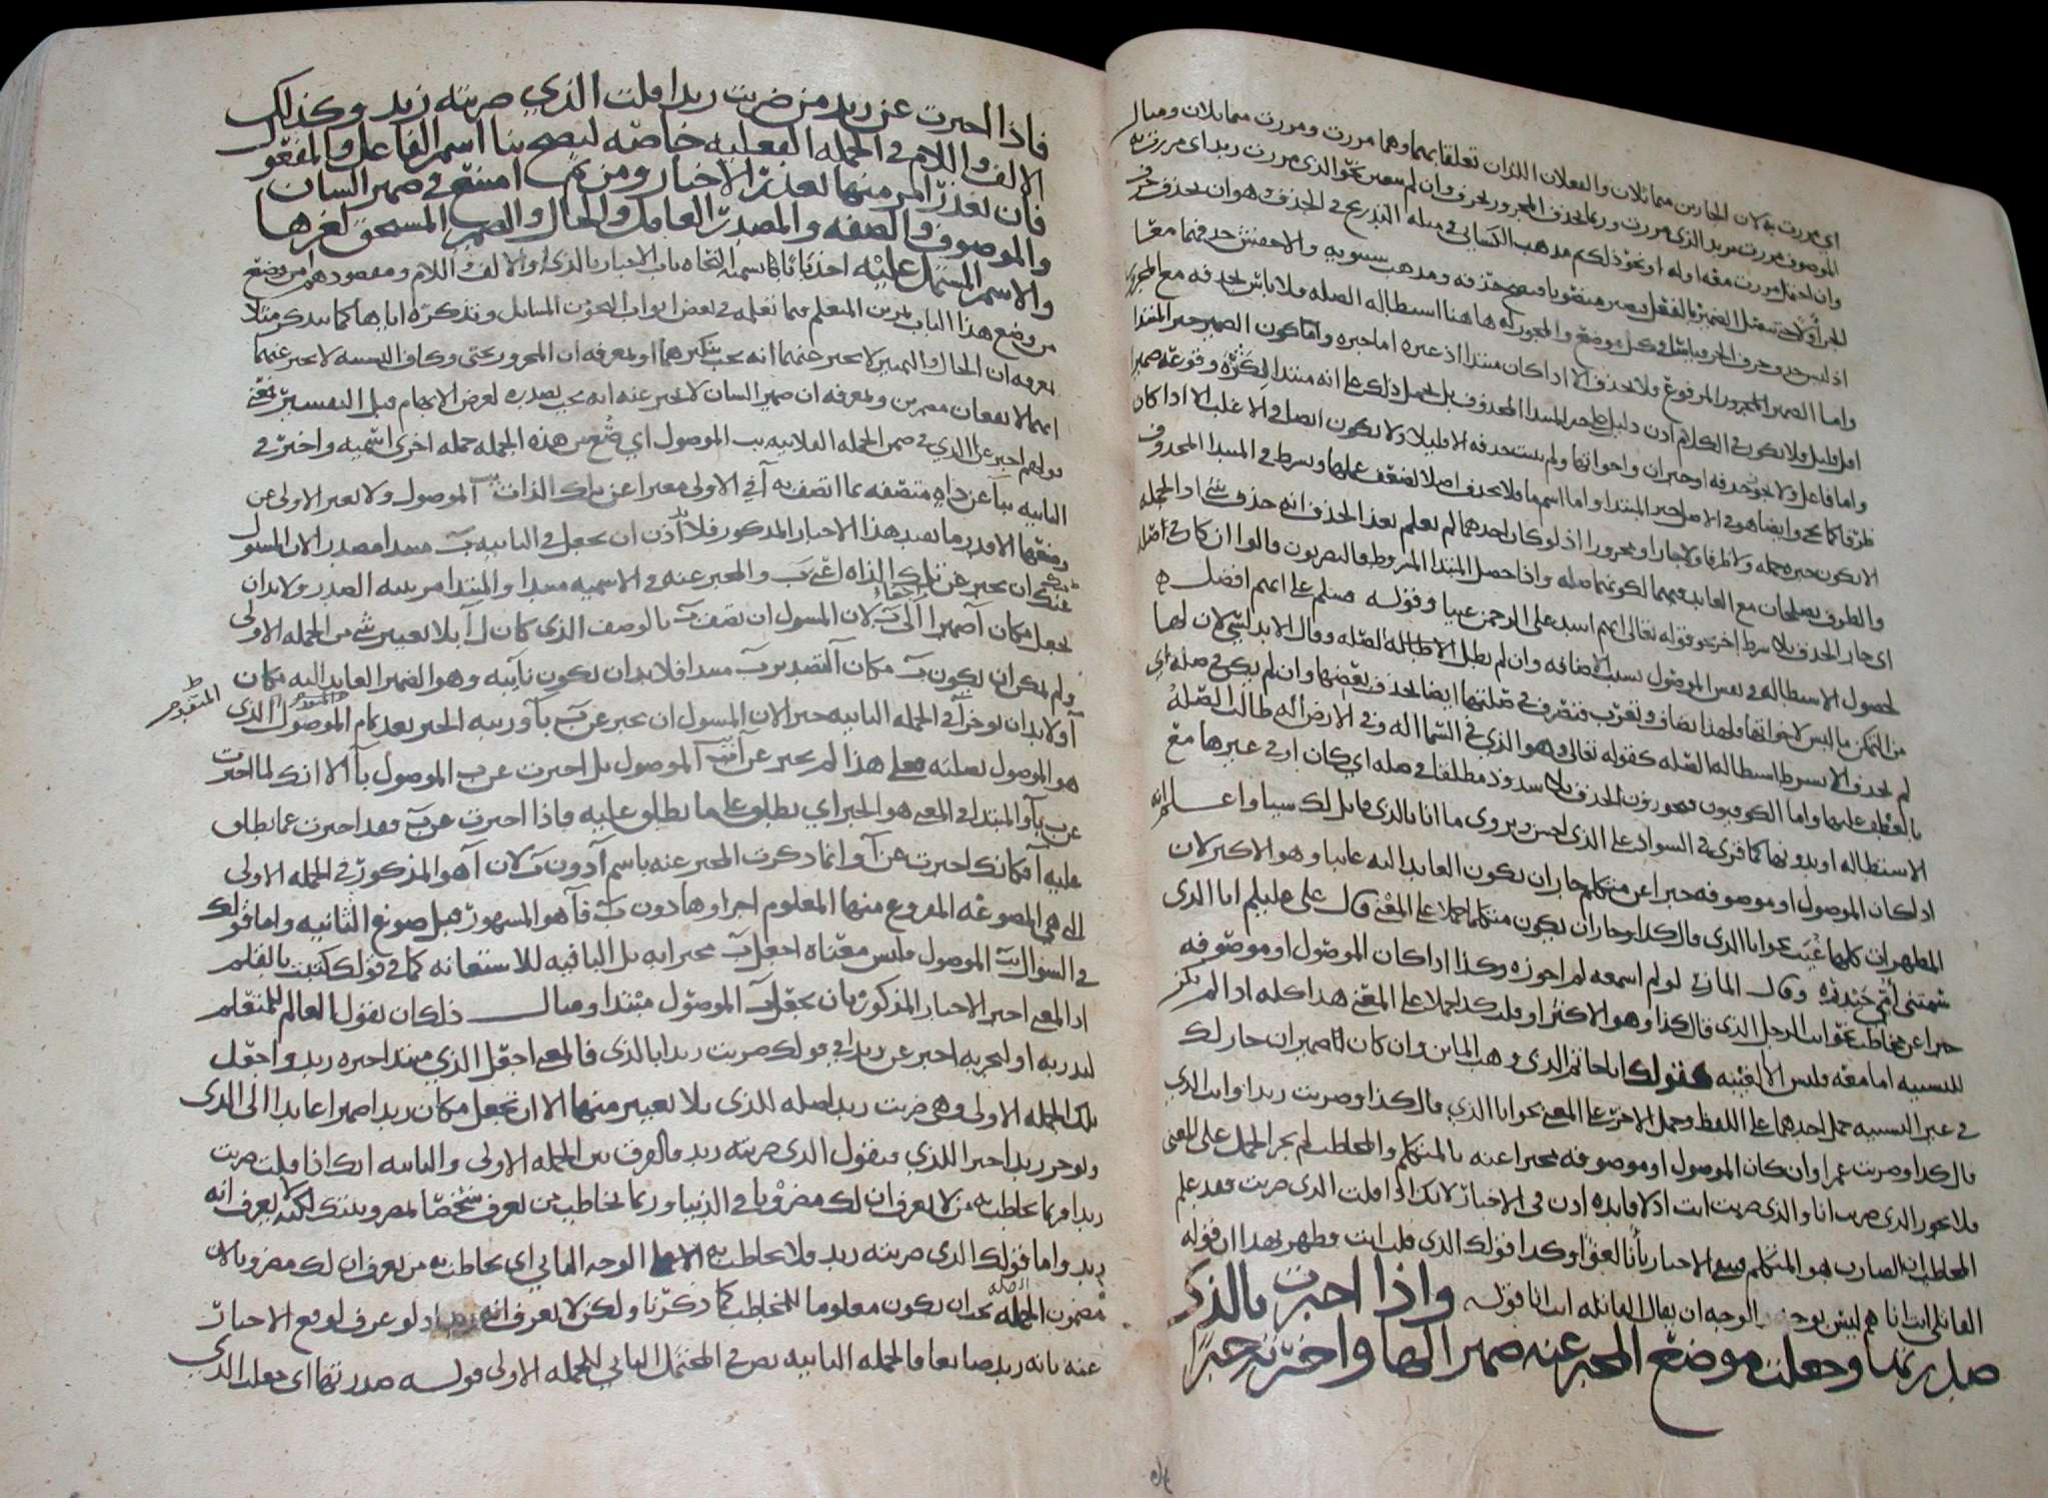 اى مررت به لان الجارين متماثلان والفعلان اللذان تعلقا بهما وهما مررت ومررت متماثلان ومثال
الموصوف مررت بزيد الذى مررت وربما حذف المجرور بحرف وان لم يتعين نحو الذى مررت زيد اى مررت به
وان احتمل مررت معه او له او نحو ذلك مذهب الكسائى فى مثله التدريج فى الحذف وهو ان يحذف حرف
الجر اولا حتى يتصل الضمير بالفعل فيصير منصوبا فيصح حذفه ومذهب سيبويه والاخفش حذفهما معا
اذ ليس حذف حرف الجر قياسا فى كل موضع والمجوز له هاهنا استطالة الصلة فلا باس بحذفه مع المجرور
واما الضمير المرفوع فلا يحذف الا اذا كان مبتدا اذ غيره اما خبره واما كون الضمير خبر المبتدا
اقل قليل فلا يكون فى الكلام اذن دليل على خبر المبتدا المحذوف بل يحمل ذلك على انه مبتدا لكثرة وقوعه ضميرا
واما فاعل ولا يجوز حذفه او خبر ان واخواتها ولم يثبت حذفه الا قليلا ولا يكون ايضا فى الاغلب الا اذا كان
ظرفا كما يجى وايضا هو فى الاصل خبر المبتدا واما اسم ما فلا يحذف اصلا لضعف عملها ويشرط فى المبتدا المحذوف
الا يكون خبره جمله ولا ظرفا ولا جارا ومجرورا اذ لو كان احدهما لم يعلم بعد الحذف انه حذف شى اذ الجمله
والظرف يصلحان مع العايد فيهما لكونهما صله واذا حصل المبتدا المشروط فالبصريون قالوا ان كان فى صله
اى جاز الحذف بلا شرط اخر نحو قوله تعالى ايهم اشد على الرحمن عتيا وقوله فسلم على ايهم افضل
لحصول الاستطاله فى نفس الموصول بسبب الاضافه وان لم يطل الاطاله لصله وقال الا بد لشى لان لها
من التمكن ما ليس لاخواتها ولهذا يضاف وتعرب فتصرف فى صلتها ايضا بحذف بعضها وان لم يكن فى صله اى
لم يحذف الا بشرط استطاله الصله كقوله تعالى وهو الذى فى السما اله وفى الارض اله طالت الصله
بالعطف عليها واما الكوفيون فيجوزون الحذف بلا شذوذ مطلقا فى صله اى كان او فى غيرها مع
الاستطاله او بدونها كما قرى فى الشواذ على الذى احسن ويروى ما انا بالذى قايل لك سيا واعلم انه
اذا كان الموصول او موصوفه خبرا عن متكلم جاز ان يكون العايد اليه غايبا وهو الاكثر لان
المظهرات كلها غيب نحو انا الذى قال كذا وجاز ان يكون متكلما حملا على المعنى قال على عليلم انا الذى
سمتنى امى حيدره وقال المازنى لو لم اسمعه لم اجوزه وكذا اذا كان الموصول او موصوفه
خبرا عن مخاطب نحو انت الرجل الذى قال كذا وهو الاكثر او قلت كذا حملا على المعنى هذا كله اذا لم يكن
للتشبيه اما معه فليس الا الغيبه كقولك انا حاتم الذى وهب الماين وان كان ضميران جاز لك
فى غير التشبيه حمل احدهما على اللفظ وحمل الاخر على المعنى نحو انا الذى قال كذا وضربت زيدا وانت الذى
قال كذا وضربت عمرا وان كان الموصول او موصوفه مخبرا عنه بالمتكلم والمخاطب لم يجز الحمل على المعنى
فلا يجوز الذى ضربت انا والذى ضربت انت اذ لا فايده اذن فى الاخبار لانك اذا قلت الذى ضربت فقد علم
المخاطب ان الضارب هو المتكلم فيبقى الاخبار بانا لغوا وكذا قولك الذى قلت انت فظهر بهذا ان قوله
القاتلى انت انا هم ليس بوجه والوجه ان يقال القاتله انت انا قوله واذا اخبرت بالذى
صدرتها وجعلت موضع المخبر عنه ضميرا لها واخرته خبرا
فاذا اخبرت عن زيد من ضربت زيدا قلت الذى ضربته زيد وكذلك
الالف واللام فى الجملة الفعلية خاصة ليصح بنا اسم الفاعل والمفعول
فان تعذر امر منها تعذر الاخبار ومن ثم امتنع فى ضمير الشان
والموصوف والصفه والمصدر العامل والحال والضمير المستحق لغيرها
والاسم المشتمل عليه اخذنا كما سميه النحاه باب الاخبار بالذى او الالف واللام ومقصودهم من وضع
من وضع هذا الباب تمرين المتعلم فيما تعلمه فى بعض ابواب النحو من المسايل وتذكره اياها كما يتذكر مثلا
بمعرفه ان الحال والتمييز لا يخبر عنهما انه يجب تنكيرهما وبمعرفه ان المجرور بحتى وكاف التشبيه لا يخبر عنهما
انهما لا يقعان مضمرين وبمعرفه ان ضمير الشان لا يخبر عنه انه يجب تصديره لغرض الابهام قبل التفسير فمعنى
قولهم اخبر عن آ الذى فى ضمن الجمله الفلانيه بب الموصول اى صغ من هذه الجمله جمله اخرى اسميه واخبر فى
الثانيه بب عن ذات متصفه بما اتصف به آ فى الاولى معبرا عن تلك الذات بب الموصول ولا تغير الاولى عن
وضعها الا قدر ما يفيد هذا الاخبار المذكور فلا بد اذن ان يجعل فى الثانيه ب مبتدا مصدرا لان المسول
عنك ان تخبر عن تلك الذات اعنى ب والمخبر عنه فى الاسميه مبتدا والمبتدا مرتبته الصدر ولا بد ان
تجعل مكان آ ضميرا الى ب لان المسول ان تصف ب بالوصف الذى كان ل آ بلا تغيير شى من الجمله الاولى
ولم يمكن ان يكون ب مكان آ لتصدير ب مبتدا فلا بد ان يكون نايبه وهو الضمير العايد اليه مكان
آ ولا بد ان توخر آ فى الجمله الثانيه خبرا لان المسول ان تخبر عن ب بآ ورتبه الخبر بعد تمام الموصول الذى
المتقدم
هو الموصول بصلته فعلى هذا لم تخبر عن آ بب الموصول بل اخبرت عن ب الموصول بآ الا انك لما اخبرت
عن ب بآ والمبتدا فى المعنى هو الخبر اى يطلق على ما يطلق عليه فاذا اخبرت عن ب فقد اخبرت عما يطلق
عليه آ فكانك اخبرت عن آ وانما ذكرت المخبر عنه باسم آ دون ب لان آ هو المذكور فى الجمله الاولى
التى هى المصوغه المفروغ منها المعلوم اجزاوها دون ب فآ هو المشهور قبل صوغ الثانيه واما قولك
فى السوال بب الموصول فليس معناه اجعل ب مخبرا به بل البا فيه للاستعانه كما فى قولك كتبت بالقلم
اذ المعنى اخبر الاخبار المذكور بان تجعل ب الموصول مبتدا ومثال ذلك ان يقول العالم للمتعلم
ليدربه او ليجربه اخبر عن زيد فى قولك ضربت زيدا بالذى فالمعنى اجعل الذى مبتدا خبره زيد واجعل
تلك الجمله الاولى وهى ضربت زيدا صله للذى بلا تغيير منها الا ان تجعل مكان زيد ضميرا عايدا الى الذى
وتوخر زيدا خبرا للذى فتقول الذى ضربته زيد فالفرق بين الجمله الاولى والثانيه انك اذا قلت ضربت
زيدا فربما تخاطب به من لا يعرف ان لك مضروبا فى الدنيا وربما تخاطب من تعرف شخصا بمضروبيتك لكنه لا يعرف انه
زيد واما قولك الذى ضربته زيد فلا تخاطب به الا الوجه الثانى اى تخاطب به من يعرف ان لك مضروبا لان
مضمون الجمله الصله يجب ان يكون معلوما للمخاطب كما ذكرنا ولكن لا يعرف انه زيد اذ لو عرف لوقع الاخبار
عنه بانه زيد ضايعا فالجمله الثانيه نص فى المحتمل الثانى للجمله الاولى قوله صدرتها اى جعلت الذى